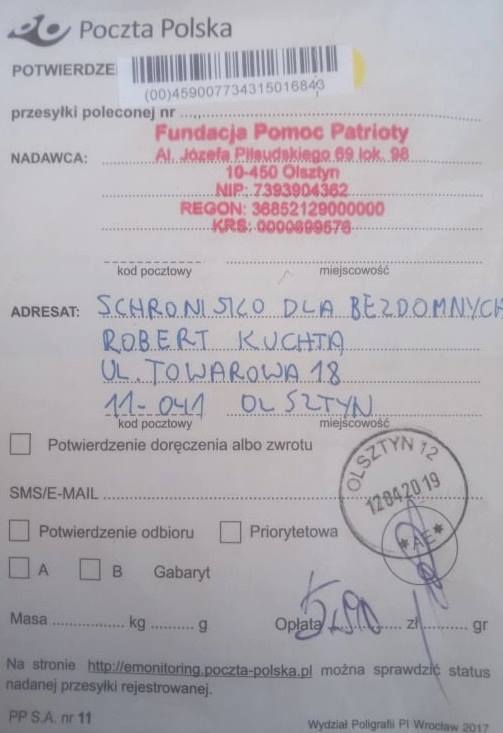 Poczta Polska
POTWIERDZE
(00)459007734315016843
przesyłki poleconej nr
Fundacja Pomoc Patrioty
NADAWCA: Al. Józefa Piłsudskiego 69 lok. 98
10-450 Olsztyn
NIP: 7393904362
REGON: 36852129000000
KRS: 0000699576
kod pocztowy miejscowość
ADRESAT: SCHRONISKO DLA BEZDOMNYCH
ROBERT KUCHTA
UL. TOWAROWA 18
11-041 OLSZTYN
kod pocztowy miejscowość
Potwierdzenie doręczenia albo zwrotu
OLSZTYN 12
SMS/E-MAIL
12042019
Potwierdzenie odbioru Priorytetowa
*AE*
A B Gabaryt
Masa kg g Opłata 5,90 zł gr
Na stronie http://emonitoring.poczta-polska.pl można sprawdzić status
nadanej przesyłki rejestrowanej.
PP S.A. nr 11 Wydział Poligrafii PI Wrocław 2017